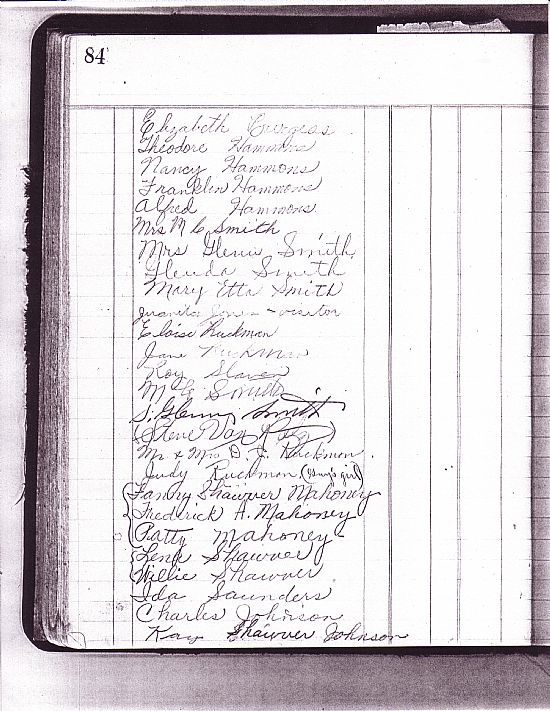 84
Elizabeth
Theodore Hammons
Nancy Hammons
Franklin Hammons
Alfred Hammons
Mrs M C Smith
Mrs Glenn Smith
Glenda Smith
Mary Etta Smith
Juanita Jones - visitor
Eloise Ruckman
Jane Ruckman
Roy Slaven
M C Smith
S. Glenn Smith
(Steve Van )
Mr & Mrs D. J. Ruckman
Judy Ruckman ( girl)
Fanny Shawver Mahoney
Frederick A. Mahoney
Patty Mahoney
Lena Shawver
Willie Shawver
Ida Saunders
Charles Johnson
Kay Shawver Johnson